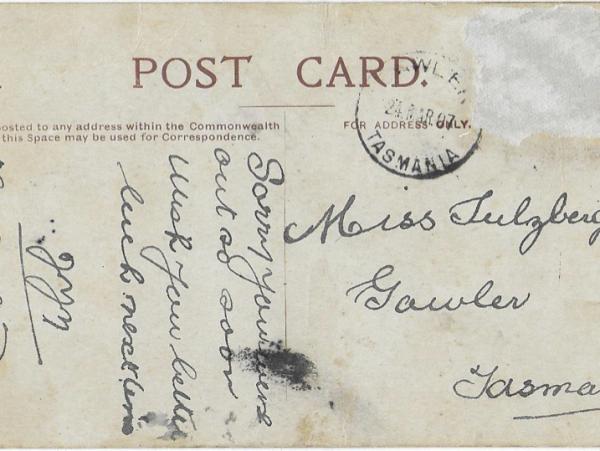 POST CARD.
posted to any address within the Commonwealth
this Space may be used for Correspondence.
FOR ADDRESS ONLY.
AWLE
24 MAR 07
TASMANIA
Sorry you were
out so soon
Wish you better
luck next time
Miss Sulzberg
Gawler
Tasma